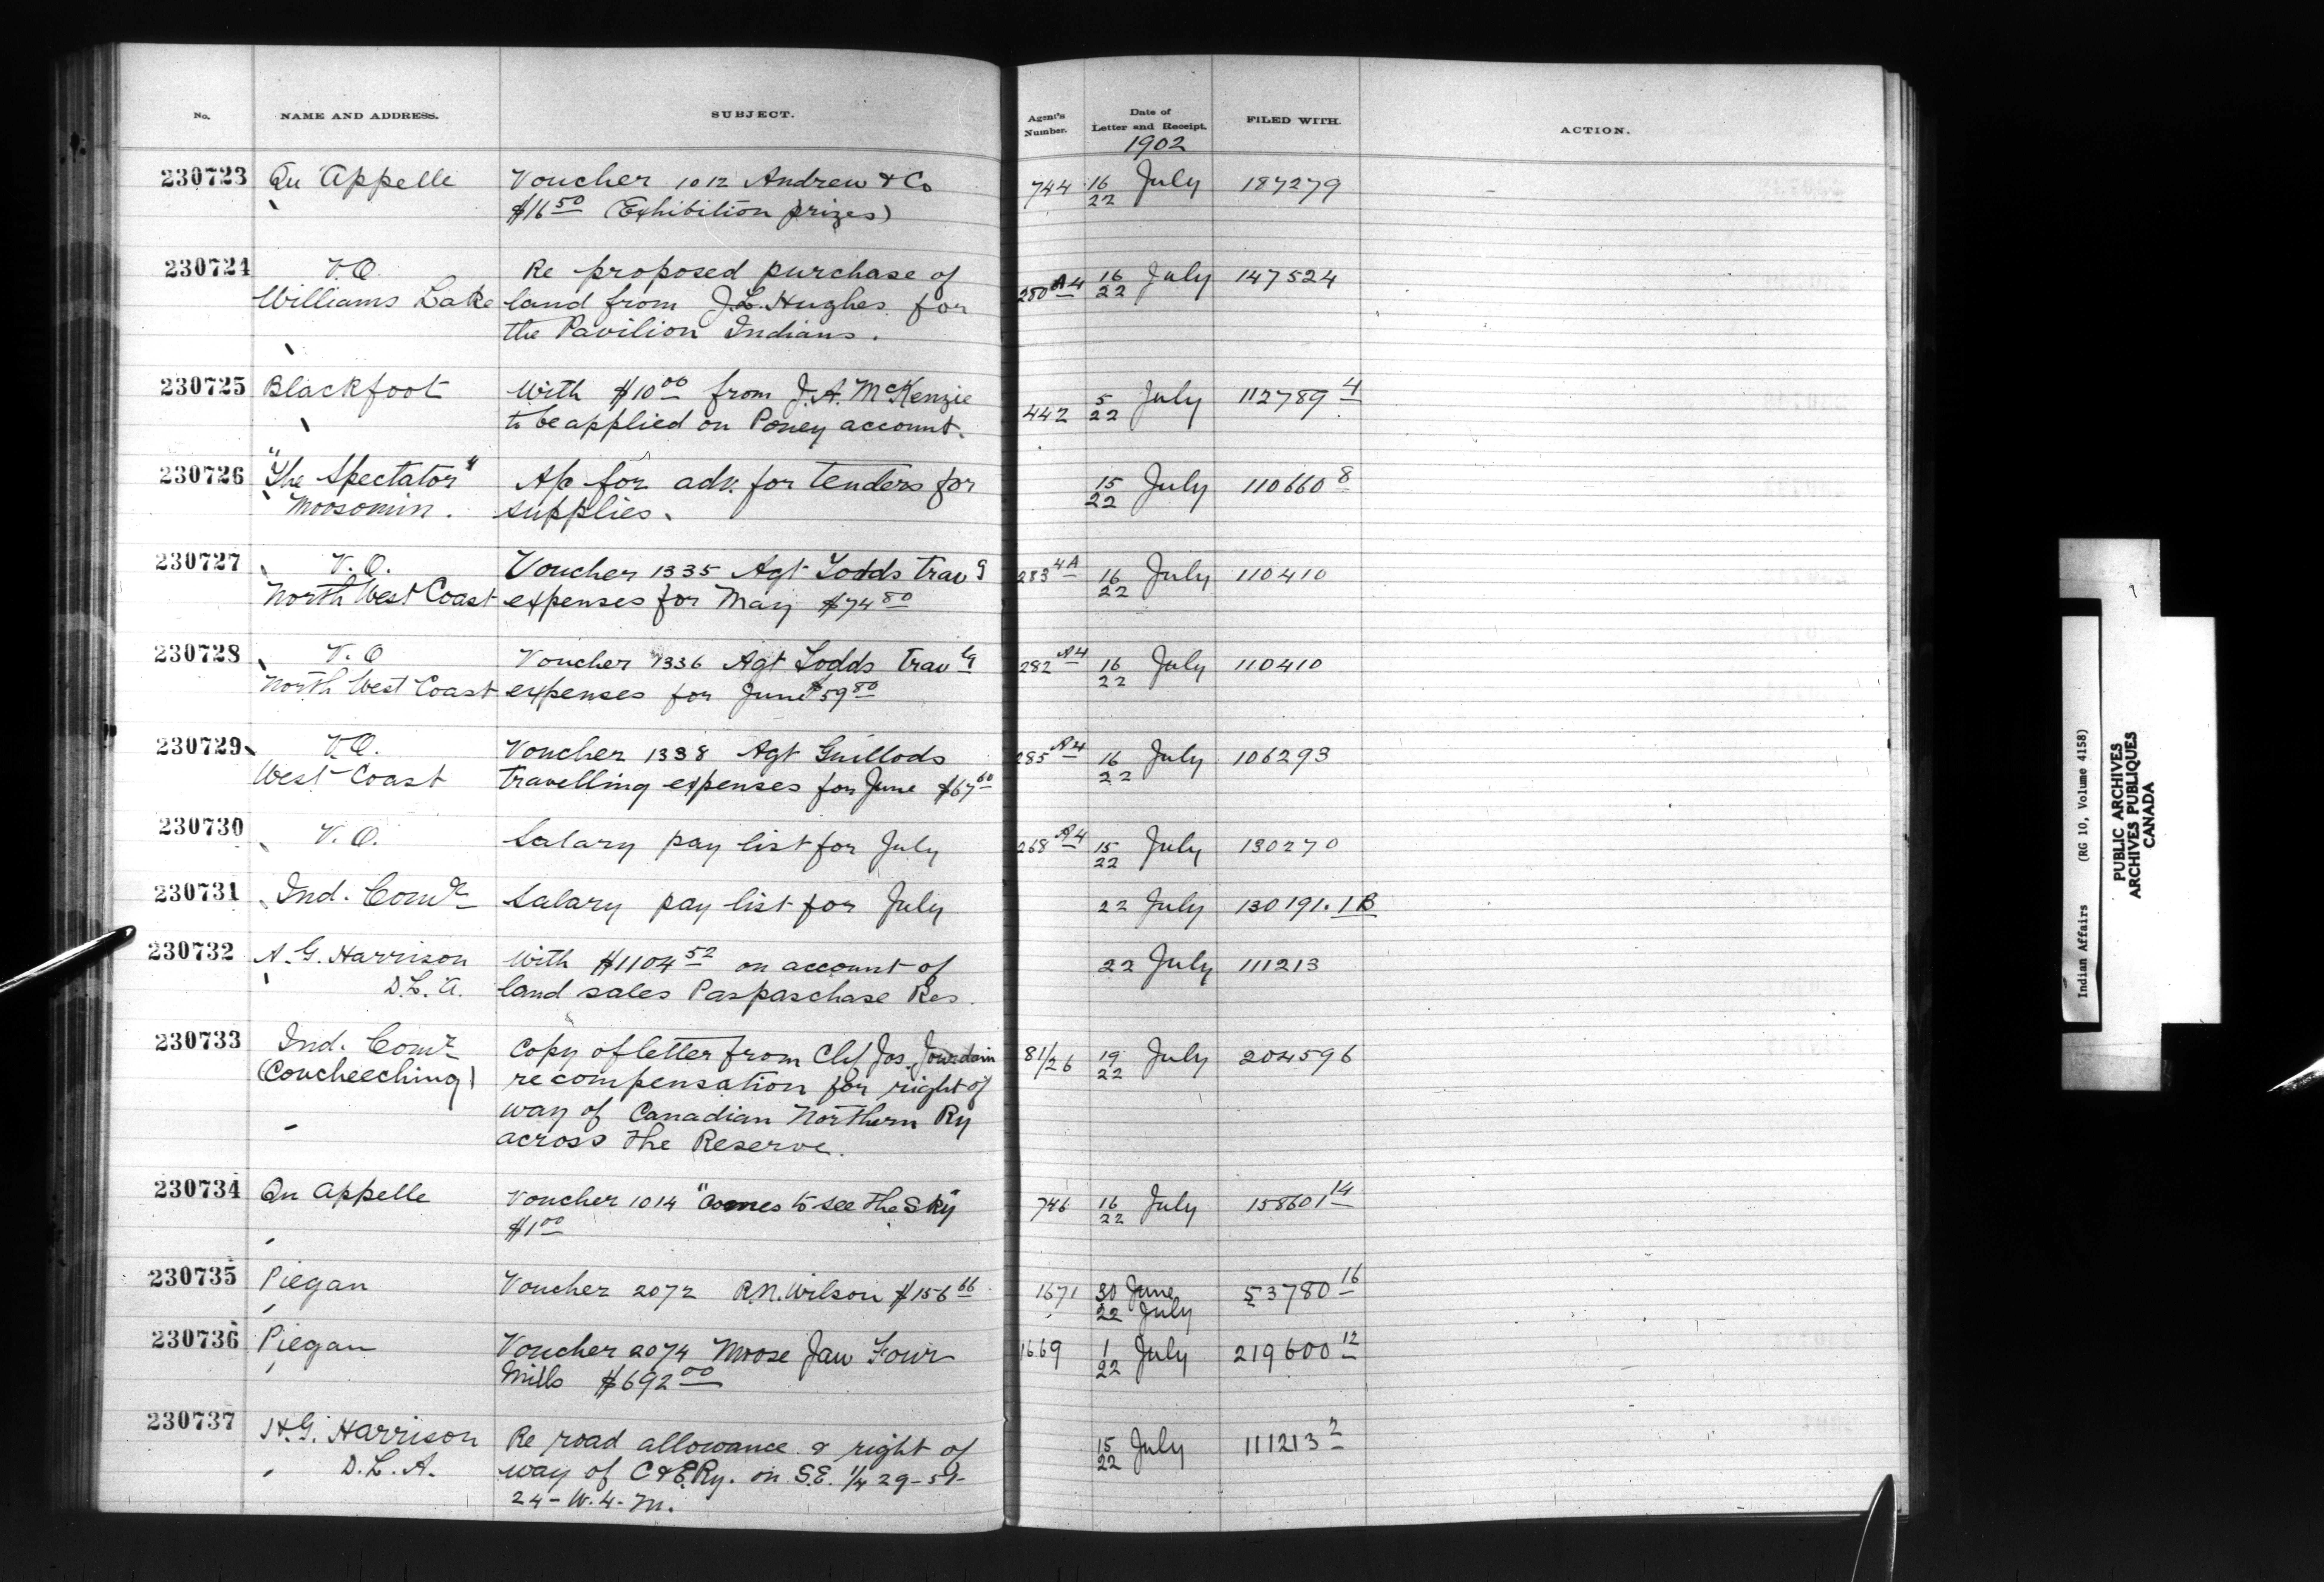 No. NAME AND ADDRESS. SUBJECT. Agent's Number. Date of Letter and Receipt. FILED WITH. ACTION.
1902
230723 Qu Appelle Voucher 1012 Andrew & Co 744 16 July 187279
$16 50 (Exhibition prizes) 22
230724 V.O. Re proposed purchase of 280 A4 16 July 147524
Williams Lake land from J.L. Hughes for 22
the Pavilion Indians.
230725 Blackfoot With $10 00 from J.A. McKenzie 442 5 July 112789 4
to be applied on Poney account. 22
230726 "The Spectator" A/c for adv. for tenders for 15 July 110660 8
Moosomin. supplies. 22
230727 V.O. Voucher 1335 Agt Todds Trav g 283 4A 16 July 110410
North West Coast expenses for May $74 80 22
230728 V.O Voucher 1336 Agt Todds Trav lg 282 A4 16 July 110410
North West Coast expenses for June $59 80 22
230729 V.O. Voucher 1338 Agt Guillods 285 A4 16 July 106293
West Coast Travelling expenses for June $67 60 22
230730 V.O. Salary pay list for July 268 A4 15 July 130270
22
230731 Ind. Comr Salary pay list for July 22 July 130191.1B
230732 A.G. Harrison With $1104 52 on account of 22 July 111213
D.L.A. land sales Paspaschase Res.
230733 Ind. Comr Copy of letter from Chf Jos. Jourdain 81/26 19 July 204596
(Coucheeching) re compensation for right of 22
way of Canadian Northern Ry
across the Reserve.
230734 Qu Appelle Voucher 1014 "Comes to see the Sky" 746 16 July 158601 14
$1 00 22
230735 Piegan Voucher 2072 R.N. Wilson $156 66 1671 30 June 53780 16
22 July
230736 Piegan Voucher 2074 Moose Jaw Flour 1669 1 July 219600 12
Mills $692 00 22
230737 A.G. Harrison Re road allowance & right of 15 July 111213 2
D.L.A. way of C&E Ry. on S.E. 1/4 29-51- 22
24-W.4.M.
Indian Affairs (RG 10, Volume 4158)
PUBLIC ARCHIVES
ARCHIVES PUBLIQUES
CANADA